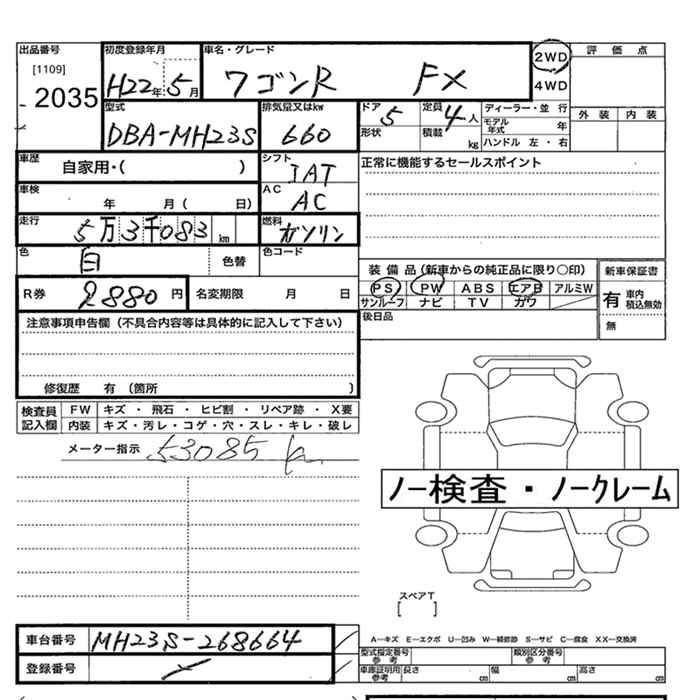 出品番号 初度登録年月 車名・グレード 2WD 評価点
[1109] 2035 H22年5月 ワゴンR FX 4WD
型式 排気量又はkw ドア 5 定員 4人 ディーラー・並行 外装 内装
DBA-MH23S 660 形状 積載 kg モデル年式 年
ハンドル 左・右
車歴 自家用・( ) シフト IAT 正常に機能するセールスポイント
車検 年 月( 日) AC AC
走行 5万3千083km 燃料 ガソリン
色 白 色替 色コード
装備品(新車からの純正品に限り○印) 新車保証書
R券 2880円 名変期限 月 日 PS PW ABS エアB アルミW 有 車内積込無効
サンルーフ ナビ TV カワ
注意事項申告欄(不具合内容等は具体的に記入して下さい) 後日品 無
修復歴 有(箇所 )
検査員記入欄 FW キズ・飛石・ヒビ割・リペア跡・X要
内装 キズ・汚レ・コゲ・穴・スレ・キレ・破レ
メーター指示 53085 k
ノー検査・ノークレーム
スペアT
[ ]
車台番号 MH23S-268664
A―キズ E―エクボ U―凹み W―補修跡 S―サビ C―腐食 XX―交換済
型式指定番号 参考 類別区分番号 参考
登録番号 車庫証明用 参考 長さ cm 幅 cm 高さ cm